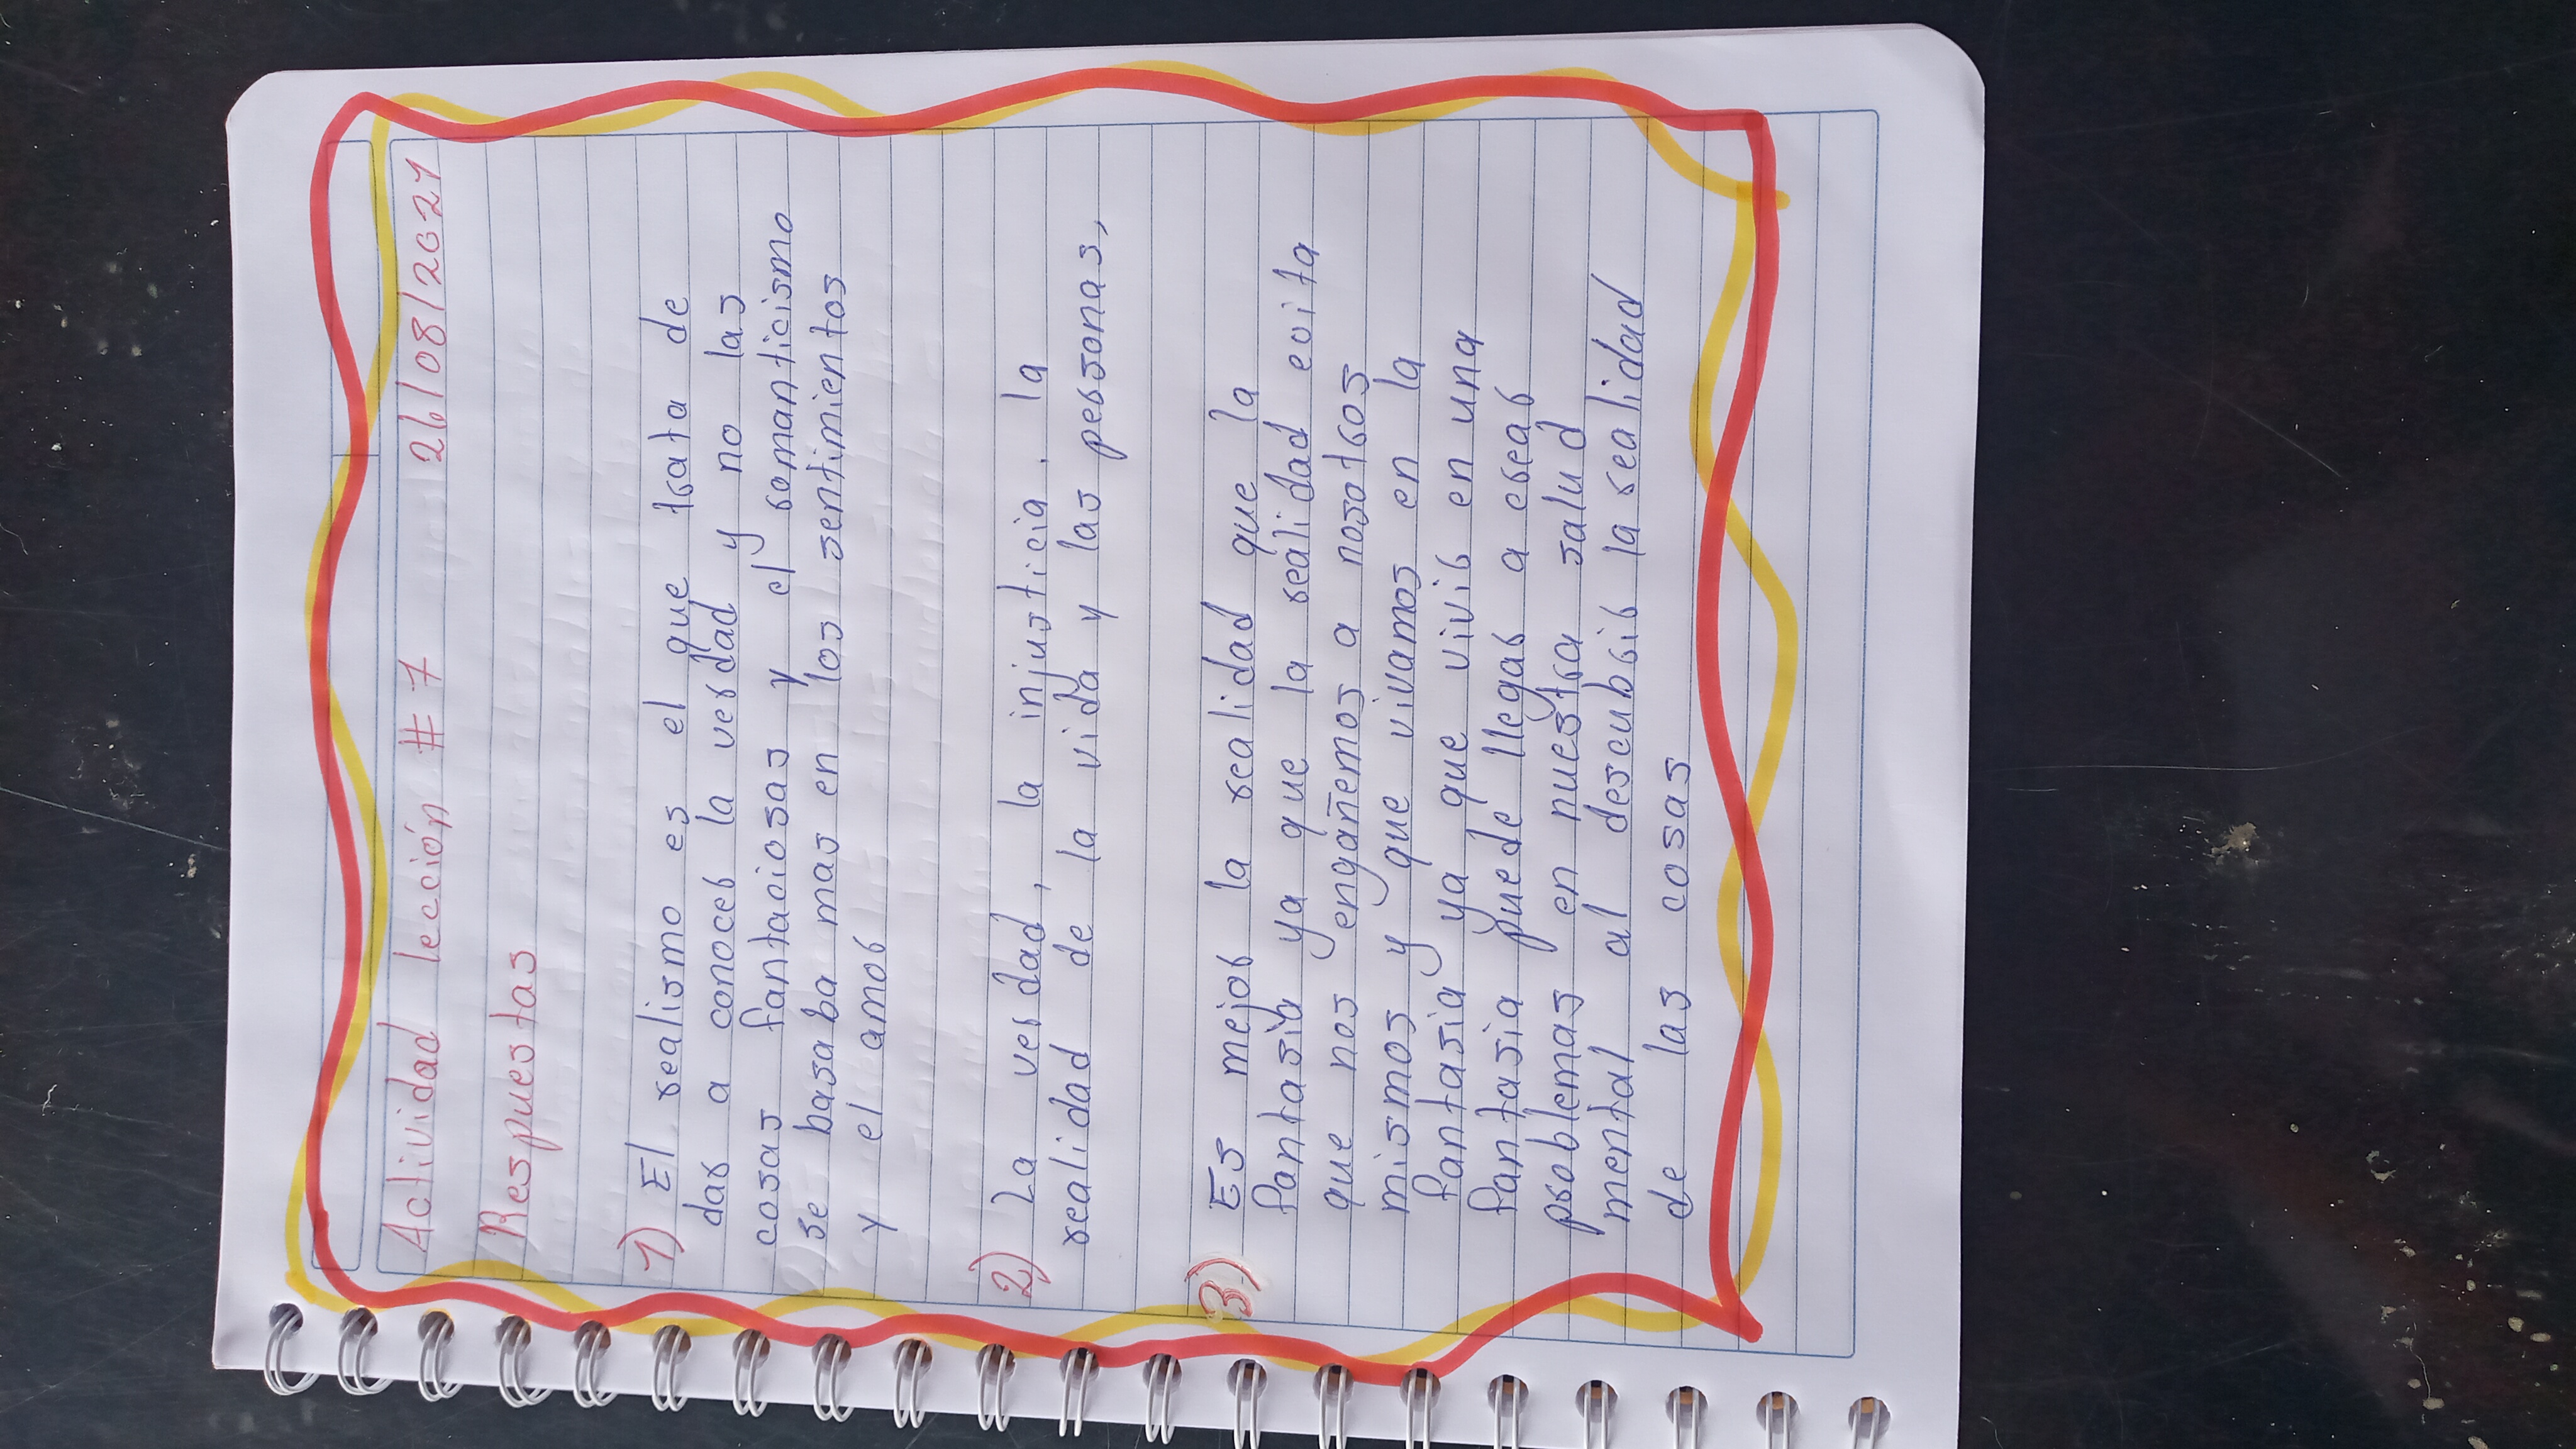 Actividad lección # 7 26/08/2021
Respuestas
1) El realismo es el que trata de
dar a conocer la verdad y no las
cosas fantaciosas y el romanticismo
se basaba mas en los sentimientos
y el amor
2) La verdad, la injusticia. la
realidad de la vida y las personas,
3) Es mejor la realidad que la
fantasia ya que la realidad evita
que nos engañemos a nosotros
mismos y que vivamos en la
fantasia ya que vivir en una
fantasia puede llegar a crear
problemas en nuestra salud
mental al descubrir la realidad
de las cosas